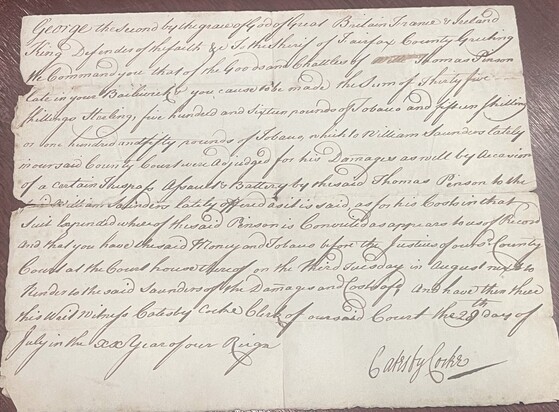 George the Second by the grace of God of Great Britain France & Ireland
King Defender of the faith &c To the Sherif of Fairfax County Greeting
We Command you that of the Goods and Chattles of Thomas Pinson
late in your Bailiwick you cause to be made the Sum of Thirty five
shillings Sterling, five hundred and sixteen pounds of Tobacco and fifteen shilling
or one hundred and fifty pounds of Tobacco, which William Saunders lately
in our said County Court were adjudged for his Damages as well by Occasion
of a certain Trespass Assault & Battery by the said Thomas Pinson to the
said William Saunders lately offered as it is said, as for his Costs in that
Suit Expended whereof the said Pinson is Convicted as appears to us of Record
And that you have the said Money and Tobacco before the Justices of our sd. County
Court at the Court house thereof on the third Tuesday in August next to
Render to the said Saunders of the Damages and Costs afsd. And have then there
this Writ Witness Catesby Cocke Clerk of our said Court the 29th day of
July in the xx Year of our Reign
Catesby Cocke